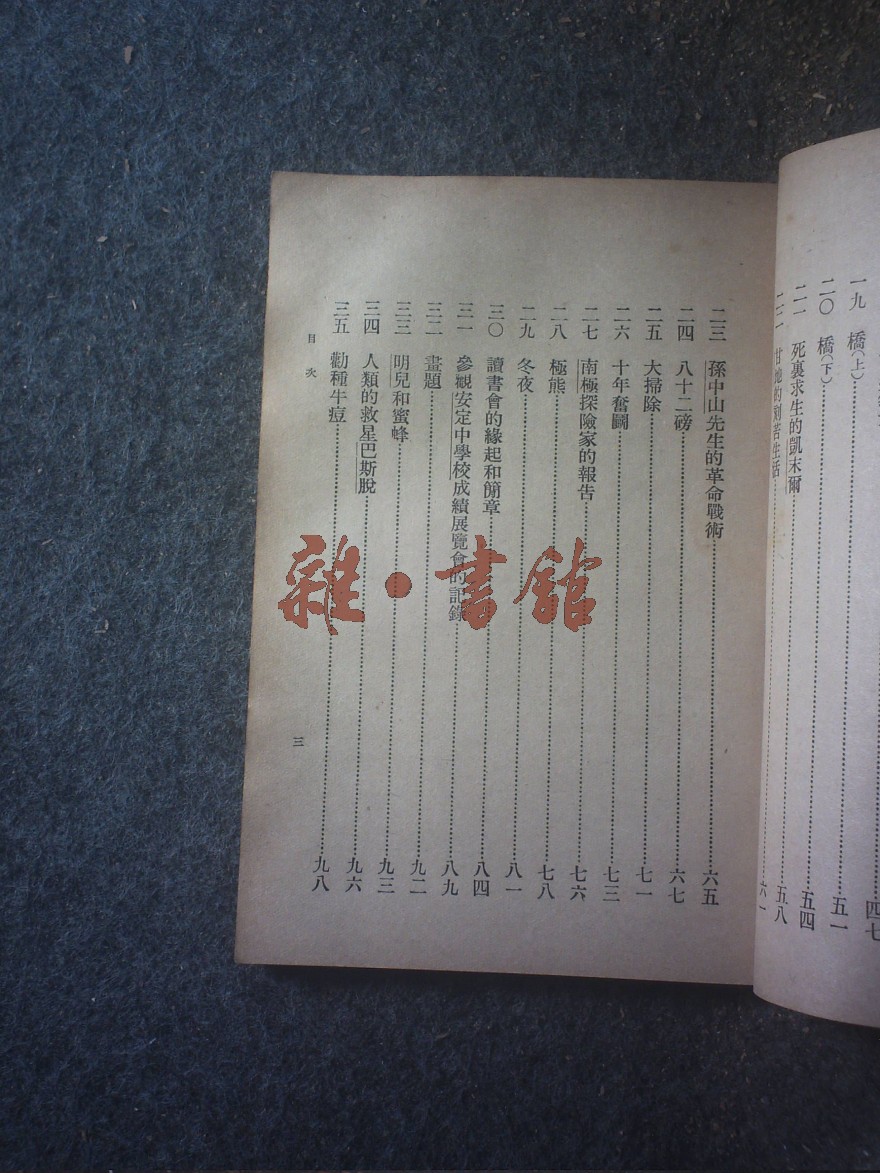 一九 橋(上)……四七
二〇 橋(下)……五一
二一 死裏求生的凱末爾……五四
五八
二二 甘地的刻苦生活……六一
二三 孫中山先生的革命戰術……六五
二四 八十二磅……六七
二五 大掃除……七一
二六 十年奮鬭……七三
二七 南極探險家的報告……七六
二八 極熊……七八
二九 冬夜……八一
三〇 讀書會的緣起和簡章……八四
三一 參觀安定中學校成績展覽會的記錄……八九
三二 畫題……九二
三三 明兒和蜜蜂……九三
三四 人類的救星巴斯脫……九六
三五 勸種牛痘……九八
目次
三
雜·書館